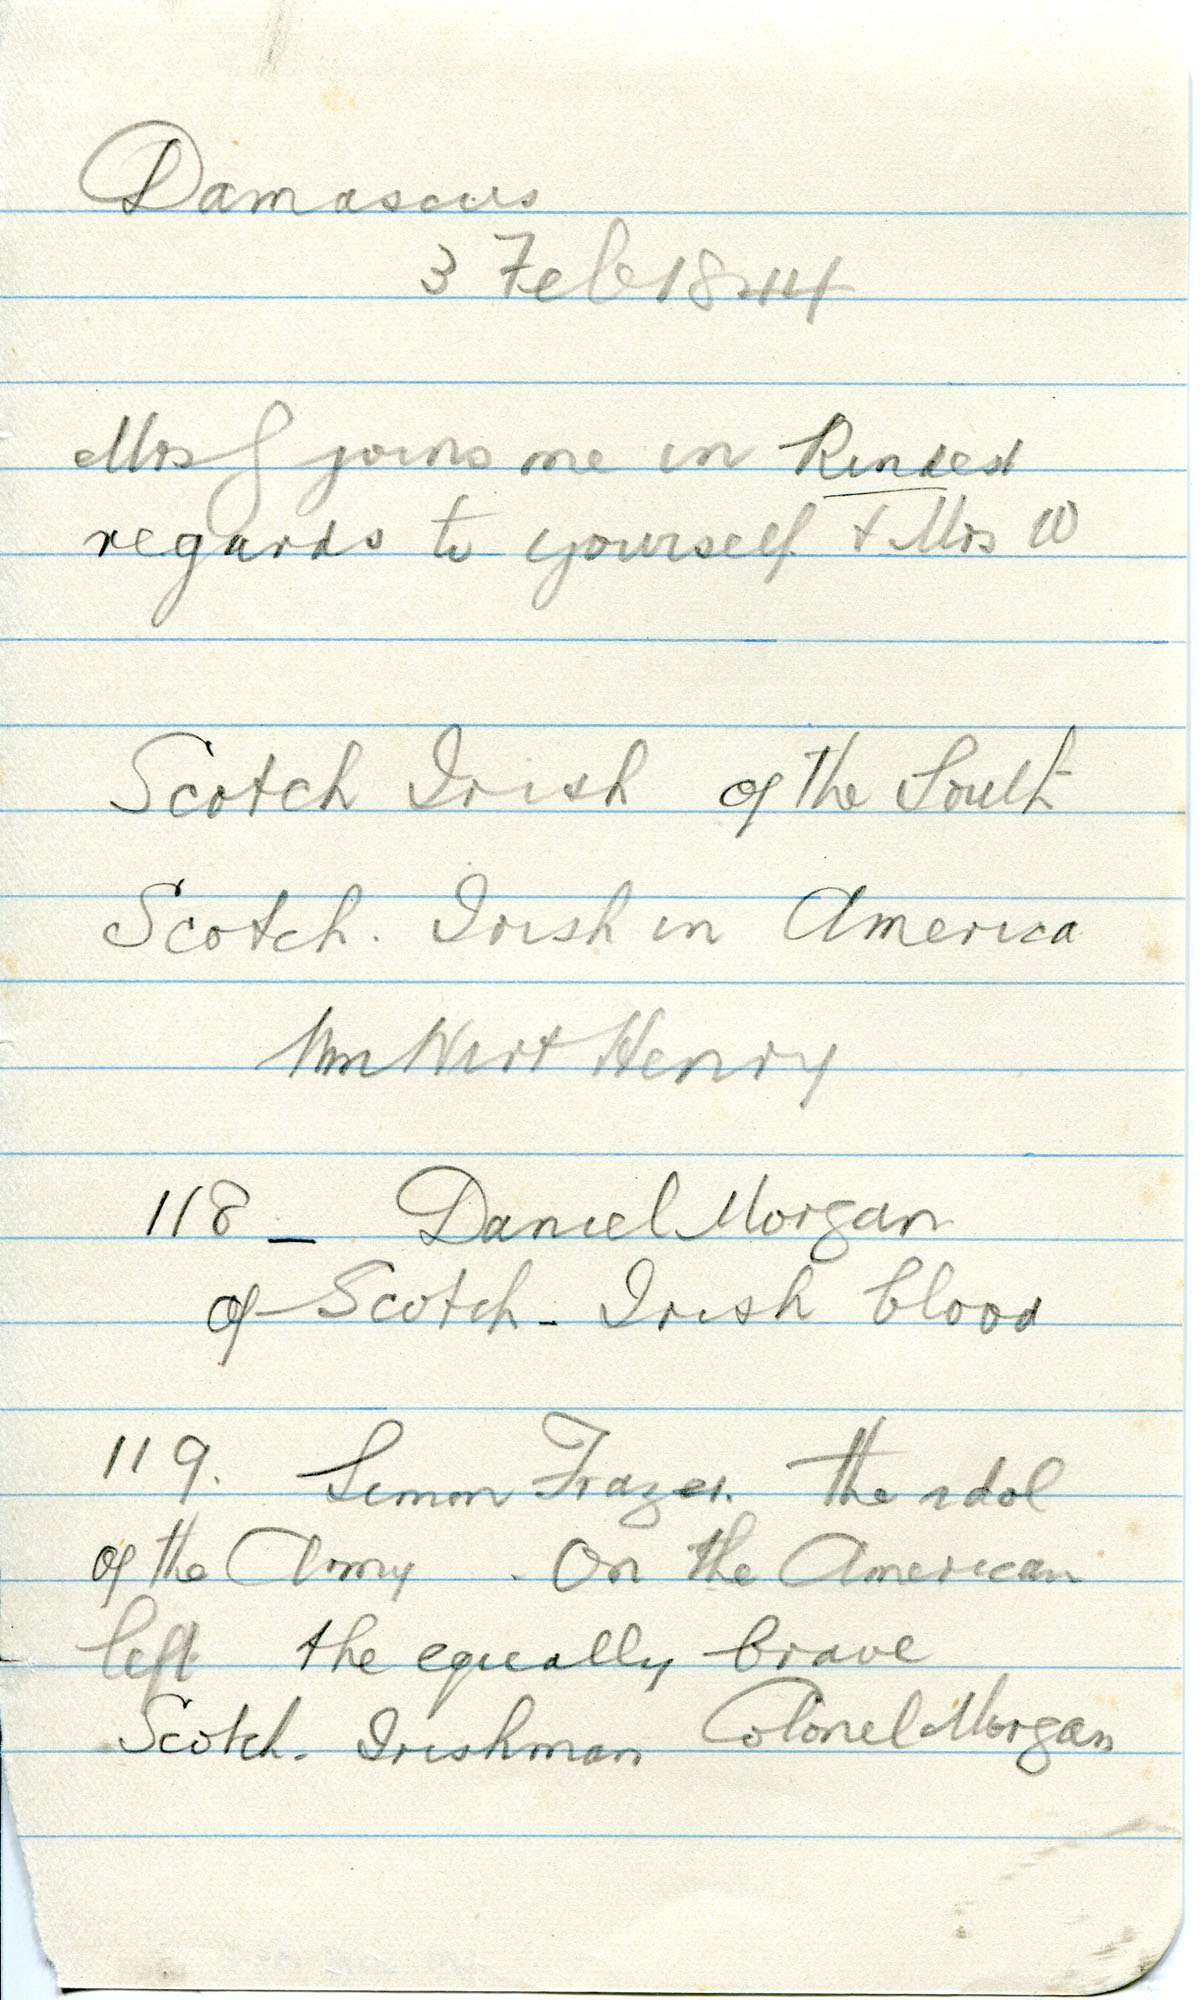 Damascus
3 Feb 1844
Mrs G joins me in Kindest
regards to yourself & Mrs W
Scotch Irish of the South
Scotch. Irish in America
Wm Wirt Henry
118 _ Daniel Morgan
of Scotch - Irish blood
119. Simon Frazer. the idol
of the Army . On the American
left the equally brave
Scotch. Irishman Colonel Morgan